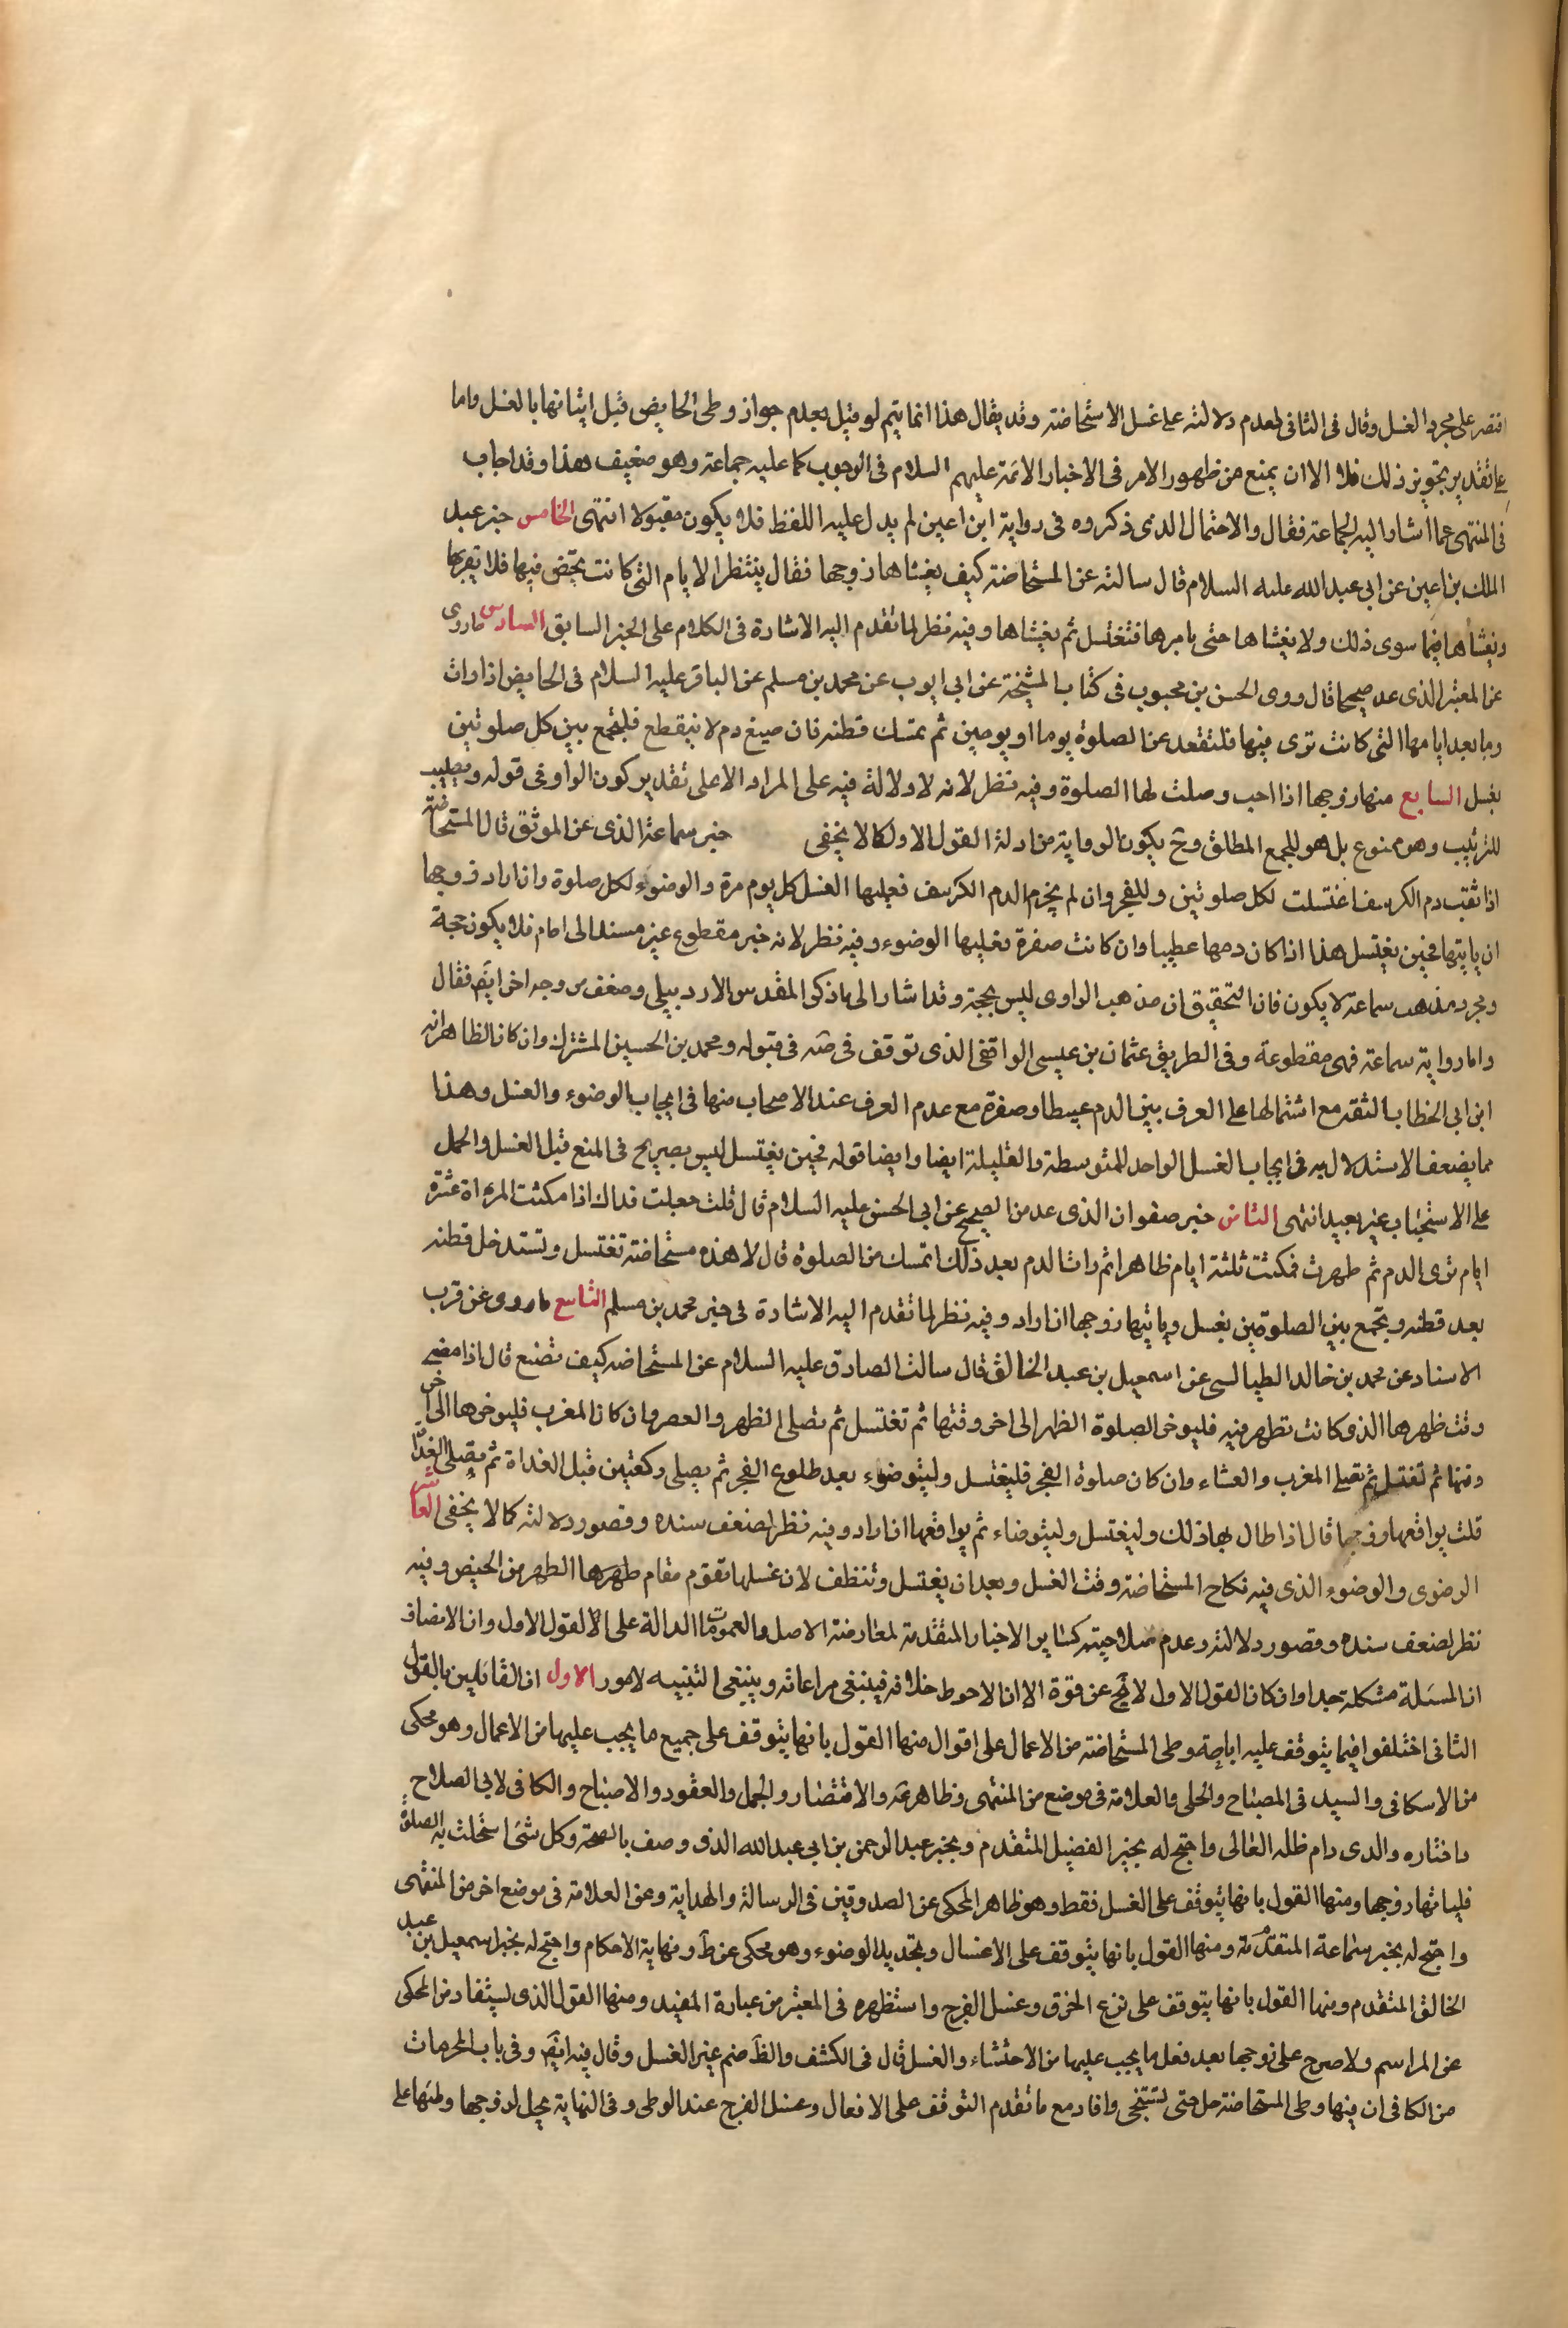 اقتصر على مجرد الغسل وقال فى الثانى لعدم دلالته على غسل الاستحاضة وقد يقال هذا انما يتم لو قيل بعدم جواز وطى الحايض قبل اتيانها بالغسل واما
على تقدير تجويز ذلك فلا الا ان يمنع من ظهور الامر فى الاخبار الائمة عليهم السلام فى الوجوب كما عليه جماعة وهو ضعيف هذا وقد اجاب
فى المنتهى عما اشار اليه الجماعة فقال والاحتمال الذى ذكروه فى رواية ابن اعين لم يدل عليه اللفظ فلا يكون مقبولا انتهى الخامس خبر عبد
الملك بن اعين عن ابى عبد الله عليه السلام قال سالته عن المستحاضة كيف يغشاها زوجها فقال ينتظر الايام التى كانت تحيض فيها فلا يقربها
ويغشاها فيما سوى ذلك ولا يغشاها حتى يامرها فتغتسل ثم يغشاها وفيه نظر لما تقدم اليه الاشارة فى الكلام على الخبر السابق السادس ما روى
عن المعتبر الذى عد صحيحا قال روى الحسن بن محبوب فى كتاب المشيخة عن ابى ايوب عن محمد بن مسلم عن الباقر عليه السلام فى الحايض اذا رات
دما بعد ايامها التى كانت ترى فيها فلتقعد عن الصلوة يوما او يومين ثم تمسك قطنه فان صبغ دم لا ينقطع فلتجمع بين كل صلوتين
بغسل السابع منها زوجها اذا احب وحلت لها الصلوة وفيه نظر لانه لا دلالة فيه على المراد الا على تقدير كون الواو فى قوله ويصيب
للترتيب وهو ممنوع بل هو للجمع المطلق وح يكون الرواية من ادلة القول الاول كما لا يخفى خبر سماعة الذى عن الموثق قال المستحاضة
اذا ثقب دم الكرسف اغتسلت لكل صلوتين وللفجر وان لم يجز الدم الكرسف فعليها الغسل كل يوم مرة والوضوء لكل صلوة وان اراد زوجها
ان ياتيها فحين يغتسل هذا اذا كان دمها عطيبا وان كانت صفرة فعليها الوضوء وفيه نظر لانه خبر مقطوع غير مسند الى امام فلا يكون حجة
ومجرد مذهب سماعة لا يكون فان التحقيق ان مذهب الراوى ليس بحجة وقد اشار الى ما ذكر المقدس الاردبيلى وضعف من وجه اخر ايضً فقال
واما رواية سماعة فهى مقطوعة وفى الطريق عثمان بن عيسى الواقفى الذى توقف فى صه فى قبوله ومحمد بن الحسين المشترك وان كان الظاهر انه
ابن ابى الخطاب الثقه مع اشتمالها على العرف بين الدم عبيطا وصفرة مع عدم العرف عند الاصحاب منها فى ايجاب الوضوء والغسل وهذا
مما يضعف الاستدلال به فى ايجاب الغسل الواحد للمتوسطة والقليلة ايضا وايضا قوله فحين يغتسل ليس بصريح فى المنع قبل الغسل والحمل
على الاستحباب غير بعيد انتهى الثامن خبر صفوان الذى عد من الصحيح عن ابى الحسن عليه السلام قال قلت جعلت فداك اذا مكثت المراة عشرة
ايام ترى الدم ثم طهرت فمكثت ثلثة ايام طاهرا ثم رات الدم بعد ذلك اتمسك من الصلوة قال لا هذه مستحاضة تغتسل وتستدخل قطنه
بعد قطنه وتجمع بين الصلوتين بغسل وياتيها زوجها ان اراد وفيه نظر لما تقدم اليه الاشارة فى خبر محمد بن مسلم التاسع ما روى عن قرب
الاسناد عن محمد بن خالد الطيالسى عن اسمعيل بن عبد الخالق قال سالت الصادق عليه السلام عن المستحاضه كيف تصنع قال اذا مضى
وقت طهرها الذى كانت تطهر فيه فليوخر الصلوة الظهر الى اخر وقتها ثم تغتسل ثم تصلى الظهر والعصر وان كان المغرب فليوخرها الى اخر
وقتها ثم تغتسل ثم تصلى المغرب والعشاء وان كان صلوة الفجر فليغتسل وليتوضوء بعد طلوع الفجر ثم يصلى ركعتين قبل الغداة ثم يصلى الغداة
قلت يواقعها زوجها قال اذا طال بها ذلك وليغتسل وليتوضاء ثم يواقعها ان اراد وفيه نظر لضعف سنده وقصور دلالته كما لا يخفى العاشر
الرضوى والوضوء الذى فيه نكاح المستحاضة وقت الغسل وبعد ان يغتسل وتنظف لان غسلها تقوم مقام طهرها الطهر من الحيض وفيه
نظر لضعف سنده وقصور دلالته وعدم صلاحيته كساير الاخبار المتقدمة لمعارضة الاصل والعمومات الدالة على القول الاول وان الانصاف
ان المسئلة مشكلة جدا وان كان القول الاول لا يخ عن قوة الا ان الاحوط خلافه فينبغى مراعاته وينبغى التنبيه لامور الاول ان القائلين بالقول
الثانى اختلفوا فيما يتوقف عليه اباحة وطى المستحاضة من الاعمال على اقوال منها القول بانها يتوقف على جميع ما يجب عليها من الاعمال وهو محكى
من الاسكافى والسيد فى المصباح والحلى والعلامة فى موضع من المنتهى وظاهر يه والاقتصار والجمل والعقود والاصباح والكافى لابى الصلاح
واختاره والدى دام ظله العالى واحتج له بخبر الفضيل المتقدم وبخبر عبد الرحمن بن ابى عبد الله الذى وصف بالصحة وكل شئ استحلت به الصلوة
فلياتها زوجها ومنها القول بانها يتوقف على الغسل فقط وهو ظاهر المحكى عن الصدوقين فى الرسالة والهداية وعن العلامة فى موضع اخر من المنتهى
واحتج له بخبر سماعة المتقدمة ومنها القول بانها يتوقف على الاغسال وبتجديد الوضوء وهو محكى عن ط ونهاية الاحكام واحتج له بخبر اسمعيل بن عبد
الخالق المتقدم ومنها القول بانها يتوقف على نزع الخرق وغسل الفرج واستظهره فى المعتبر من عبارة المفيد ومنها القول الذى يستفاد من المحكى
عن المراسم ولا حرج على زوجها بعد فعل ما يجب عليها من الاحتشاء والغسل قال فى الكشف والظ ضم غير الغسل وقال فيه ايضً وفى باب المحرمات
من الكافى ان فيها وطى المستحاضة حل حتى تستنجى وافاد مع ما تقدم التوقف على الافعال وغسل الفرج عند الوطى وفى النهاية يحل لزوجها وطيها على